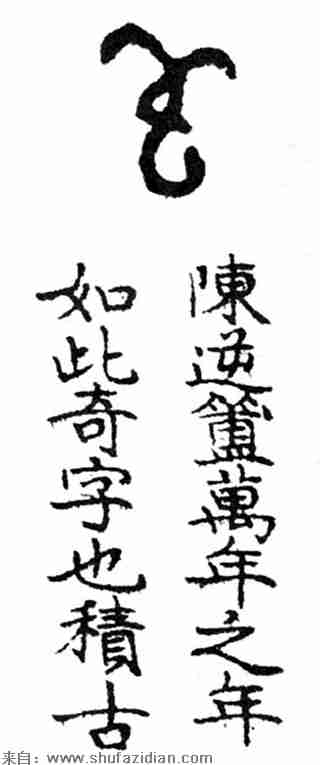 陳逆簠萬年之年
如此奇字也積古
来自：www.shufazidian.com